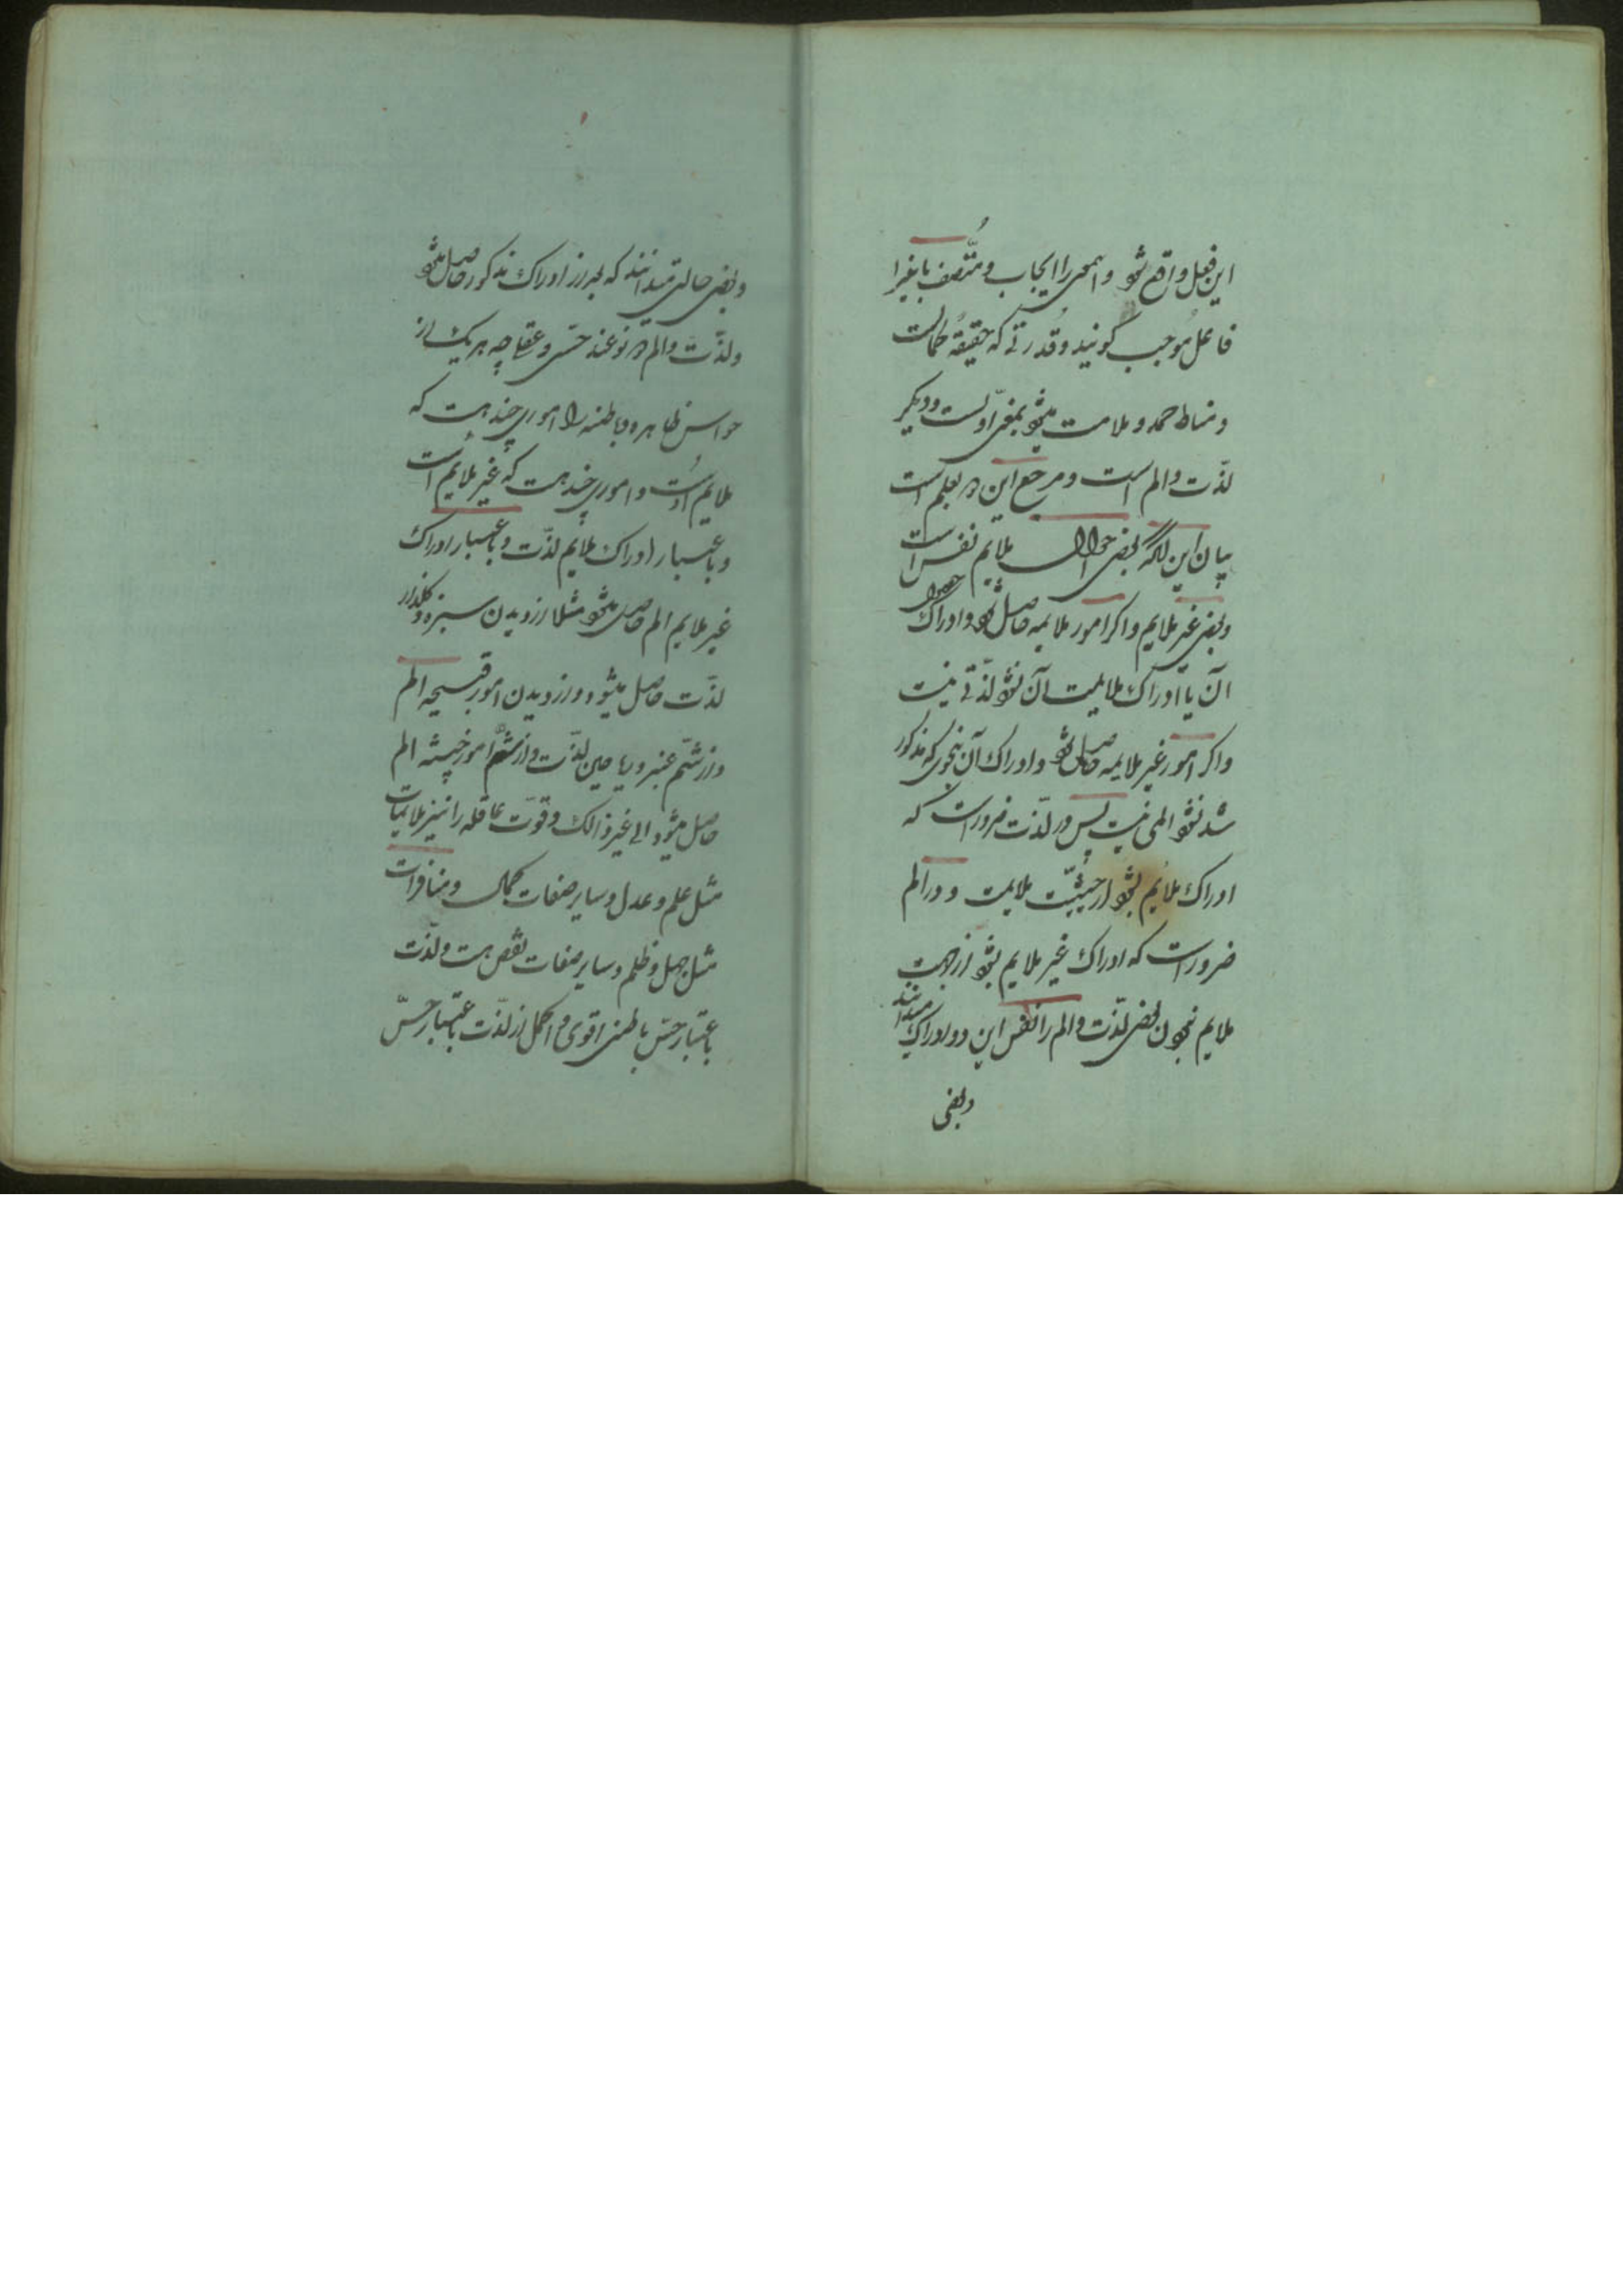 این فعل واقع شود و اینمعنی را ایجاب و متّصف باینرا
فاعل مُوجب گویند و قُدرتے که حقیقةً کمالست
و مناط حمد و ملامت میشود بمعنی اوّلست و دیگر
لذّت و الم است و مرجع این هر بعلم است
بیان این آنکه بعضی احوال ملایم نفس است
و بعضی غیر ملایم و اگر امور ملایمه حاصل شود و ادراک حصول
آن یا ادراک ملایمت آن نشود لذّتے نیست
و اگر امور غیر ملایمه حاصل شود و ادراک آن بنحوی که مذکور
شد نشود المی نیست پس در لذّت ضرور است که
ادراک ملایم بشود از حیثیّت ملایمت و در الم
ضرور است که ادراک غیر ملایم بشود از جهت
ملایم نبودن بعضی لذّت و الم را نفس این دو ادراک میدانند
و بعضی
و بعضی حالتی میدانند که بعد از ادراک مذکور حاصل میشود
و لذّت و الم دو نوعند حسّی و عقلی چه هر یک از
حواس ظاهره و باطنه را اموری چند هست که
ملایم اوست و اموری چند هست که غیر ملایم است
و باعتبار ادراک ملایم لذّت و باعتبار ادراک
غیر ملایم الم حاصل میشود مثلا از دیدن سبزه و گلذار
لذّت حاصل میشود و از دیدن امور قبیحه الم
و از شمّ عنبر و ریاحین لذّت و از شمّ امور خبیثه الم
حاصل میشود الی غیر ذالک و قوّت عاقله را نیز ملایمات
مثل علم و عدل و سایر صفات کمال و منافرات
مثل جهل و ظلم و سایر صفات نقص هست و لذّت
باعتبار حسّ باطنی اقوی و اکمل از لذّت باعتبار حسّ